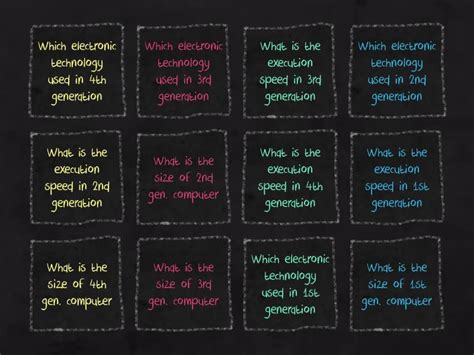 Which electronic
technology
used in 4th
generation
Which electronic
technology
used in 3rd
generation
What is the
execution
speed in 3rd
generation
Which electronic
technology
used in 2nd
generation
What is the
execution
speed in 2nd
generation
What is the
size of 2nd
gen. computer
What is the
execution
speed in 4th
generation
What is the
execution
speed in 1st
generation
What is the
size of 4th
gen. computer
What is the
size of 3rd
gen. computer
Which electronic
technology
used in 1st
generation
What is the
size of 1st
gen. computer